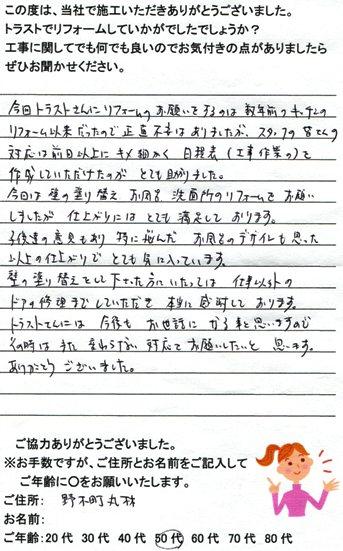 この度は、当社で施工いただきありがとうございました。
トラストでリフォームしていかがでしたでしょうか？
工事に関してでも何でも良いのでお気付きの点がありましたら
ぜひお聞かせください。
今回トラストさんにリフォームのお願いをするのは数年前のキッチンの
リフォーム以来だったので正直不安はありましたが、スタッフの皆さんの
対応は前回以上にキメ細かく日程表(工事作業の)を
作成していただけたのがとても助かりました。
今回は壁の塗り替えお風呂、洗面所のリフォームをお願い
しましたが仕上がりにはとても満足しております。
子供達の意見もあり特に悩んだお風呂のデザインも思った
以上の仕上がりでとても気に入っています。
壁の塗り替えをして下さった方にいたっては仕事以外の
ドアの修理までしていただき本当に感謝しております。
トラストさんには今後もお世話になる事と思いますので
その時はまた変わらない対応でお願いしたいと思います。
ありがとうございました。
ご協力ありがとうございました。
※お手数ですが、ご住所とお名前をご記入して
ご年齢に〇をお願いいたします。
ご住所: 野木町丸林
お名前:
ご年齢:20代 30代 40代 50代 60代 70代 80代